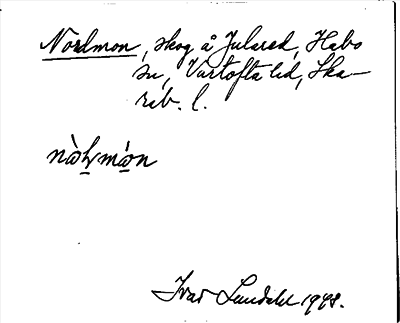 Norlmon, skog å Julared, Habo
sn, Vartofta hd, Ska-
rab. l.
nòḷmón
Ivar Lundahl 1948.